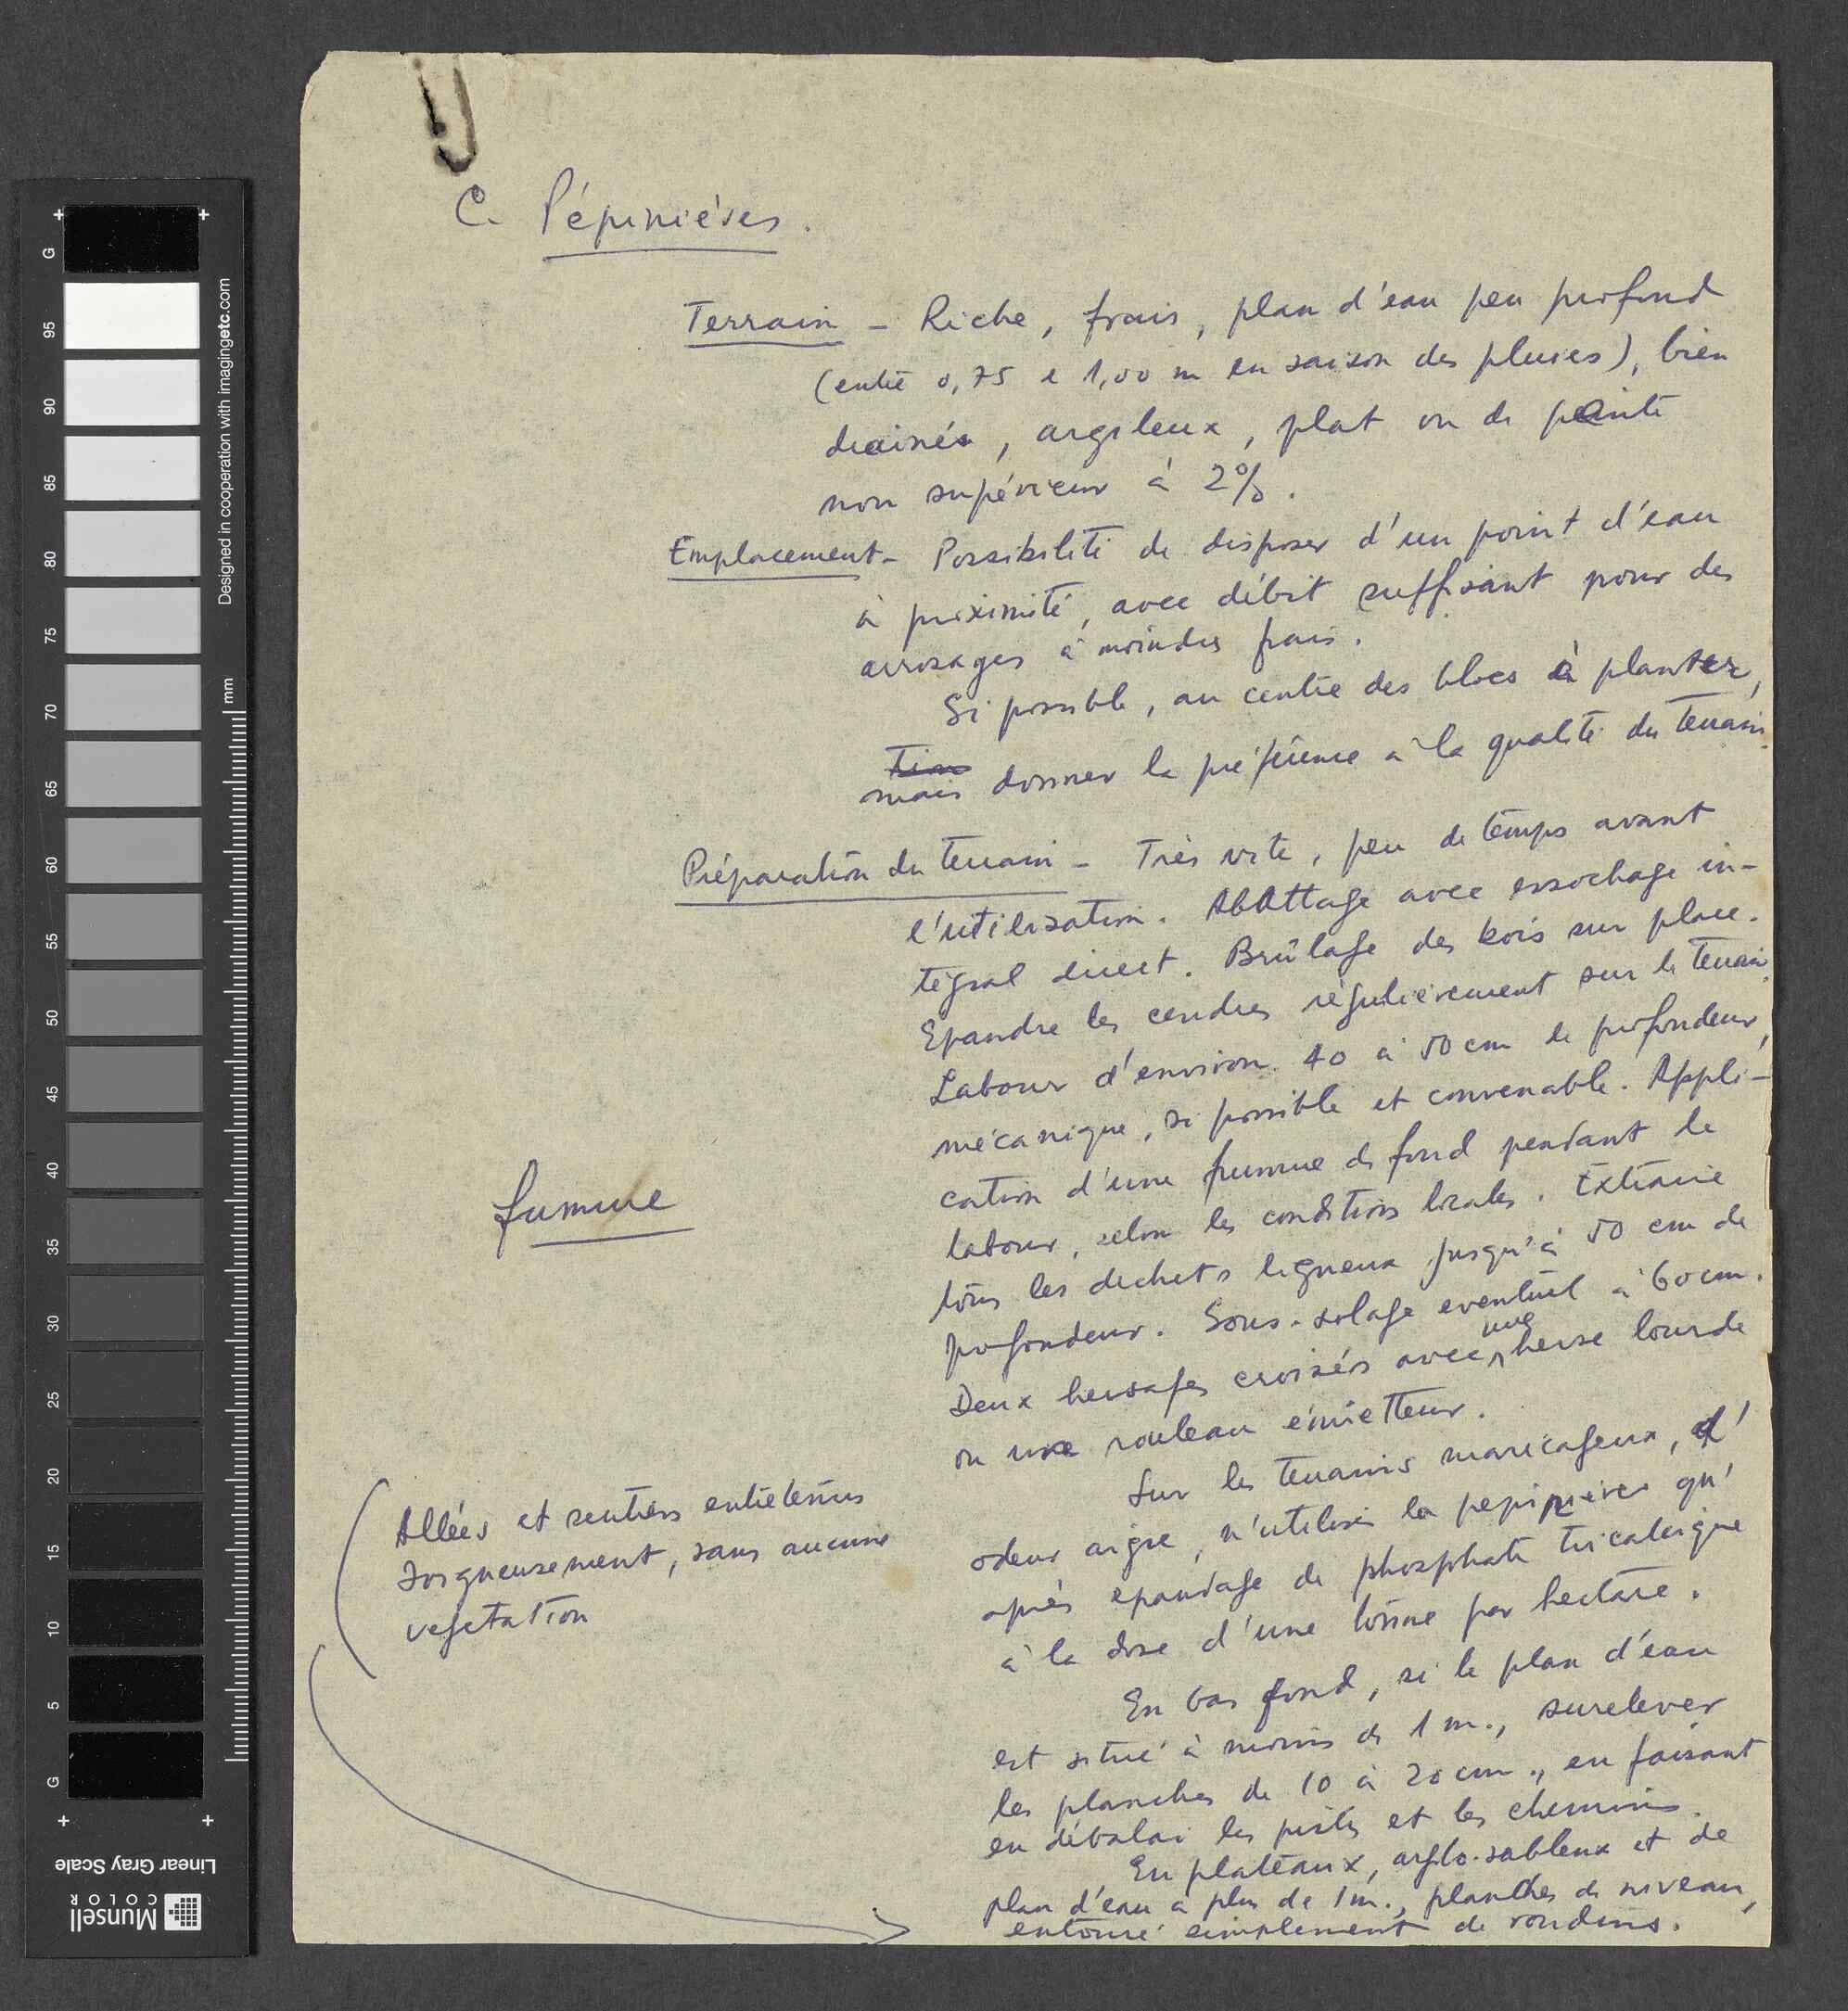 C. Pépinières.
Terrain - Riche, frais, plan d'eau peu profond
(entre 0,75 e 1,00 m en saison des pluies), bien
drainés, argileux, plat ou de pente
non supérieur à 2%.
Emplacement - Possibilité de disposer d'un point d'eau
à proximité, avec débit suffisant pour des
arrosages à moindres frais.
Si possible, au centre des blocs à planter,
mais donner la préférence à la qualité du terrain.
Préparation du terrain - Très vite, peu de temps avant
l'utilisation. Abattage avec essochage in-
tégral direct. Brûlage des bois sur place.
Epandre les cendres régulièrement sur le terrain.
Labour d'environ 40 à 50 cm de profondeur,
mécanique, si possible et convenable. Appli-
cation d'une fumure de fond pendant le
labour, selon les conditions locales. Extraire
tous les dechets ligneux jusqu'à 50 cm de
profondeur. Sous-solage eventuel à 60 cm.
Deux hersages croisés avec une herse lourde
ou une rouleau émietteur.
Sur les terrains marécageux, d'
odeur aigre, n'utiliser la pepinière qu'
après epandage de phosphate tricalcique
à la dose d'une tonne par hectare.
En bas fond, si le plan d'eau
est situé à moins de 1 m., surelever
les planches de 10 à 20 cm., en faisant
en déblai les pistes et les chemins.
En plateaux, arglo-sableux et de
plan d'eau à plus de 1 m., planches de niveau,
entouré simplement de rondins.
fumure
Allées et sentiers entretenus
soigneusement, sans aucune
vegetation
Designed in cooperation with imagingetc.com
mm
G
95
90
85
80
75
70
65
60
55
50
45
40
35
30
25
20
15
10
5
G
Linear Gray Scale
Munsell
COLOR